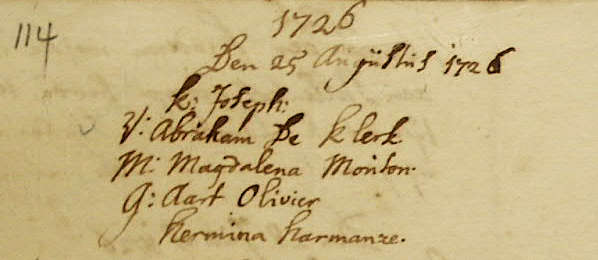 1726
114
Den 25 Augüstus 1726
k: Joseph:
V: Abraham De klerk
M: Magdalena Mouton.
G: Aart Olivier
Hermina Harmanze.